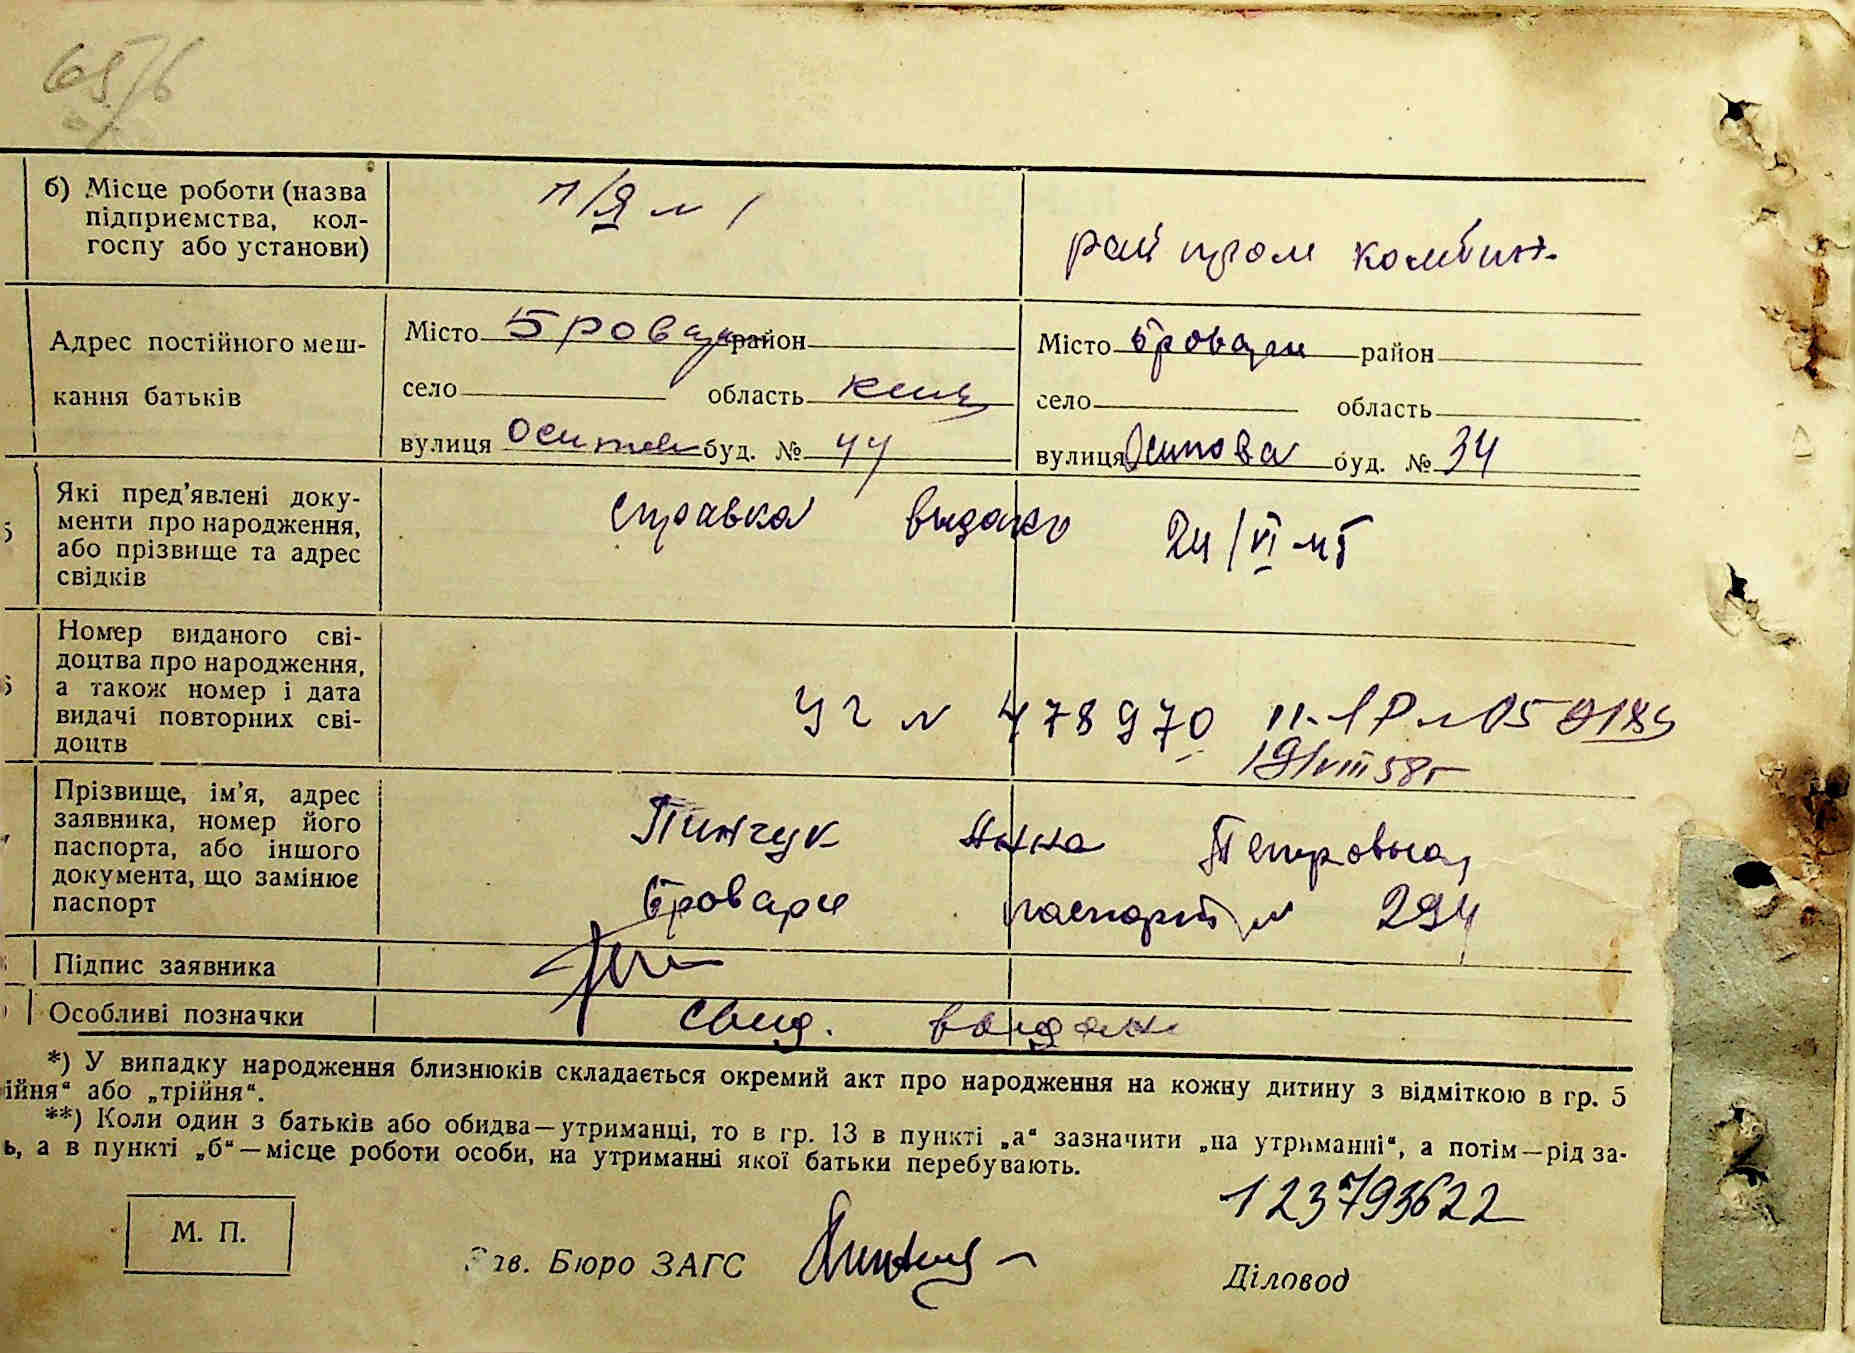 65/6
б) Місце роботи (назва
підприємства, кол-
госпу або установи)
п/я № 1
рай пром комбинт.
Адрес постійного меш-
кання батьків
Місто Бровари район
село область Киив
вулиця буд. № 44
Місто Бровари район
село область
вулиця Осипова буд. № 34
5
Які пред’явлені доку-
менти про народження,
або прізвище та адрес
свідків
справка выдано 24/VI №5
6
Номер виданого сві-
доцтва про народження,
а також номер і дата
видачі повторних сві-
доцтв
УГ № 478970 II-УР №
19/VIII 58г
Прізвище, ім’я, адрес
заявника, номер його
паспорта, або іншого
документа, що замінює
паспорт
Пинчук Анна Петровна,
Бровары паспорт № 294
Підпис заявника
Особливі позначки
свид. выдано
*) У випадку народження близнюків складається окремий акт про народження на кожну дитину з відміткою в гр. 5
ійня“ або „трійня“.
**) Коли один з батьків або обидва—утриманці, то в гр. 13 в пункті „а“ зазначити „на утриманні“, а потім—рід за-
ь, а в пункті „б“—місце роботи особи, на утриманні якої батьки перебувають.
123793622
М. П.
Зав. Бюро ЗАГС
Діловод